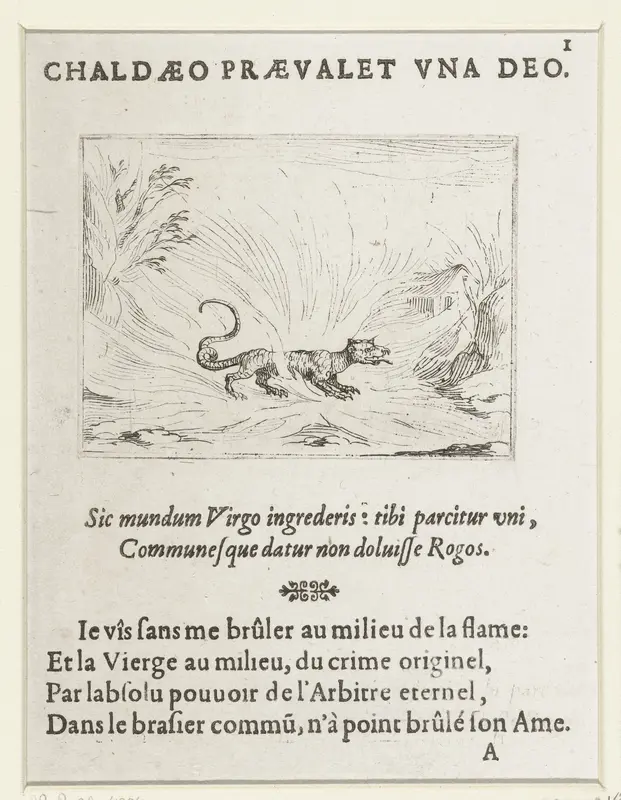 1
CHALDÆO PRÆVALET VNA DEO.
Sic mundum Virgo ingrederis : tibi parcitur vni ,
Communeſque datur non doluiſſe Rogos.
Ie vîs ſans me brûler au milieu de la flame:
Et la Vierge au milieu, du crime originel,
Par labſolu pouuoir de l'Arbitre eternel ,
Dans le braſier commū, n'à point brûlé ſon Ame.
A